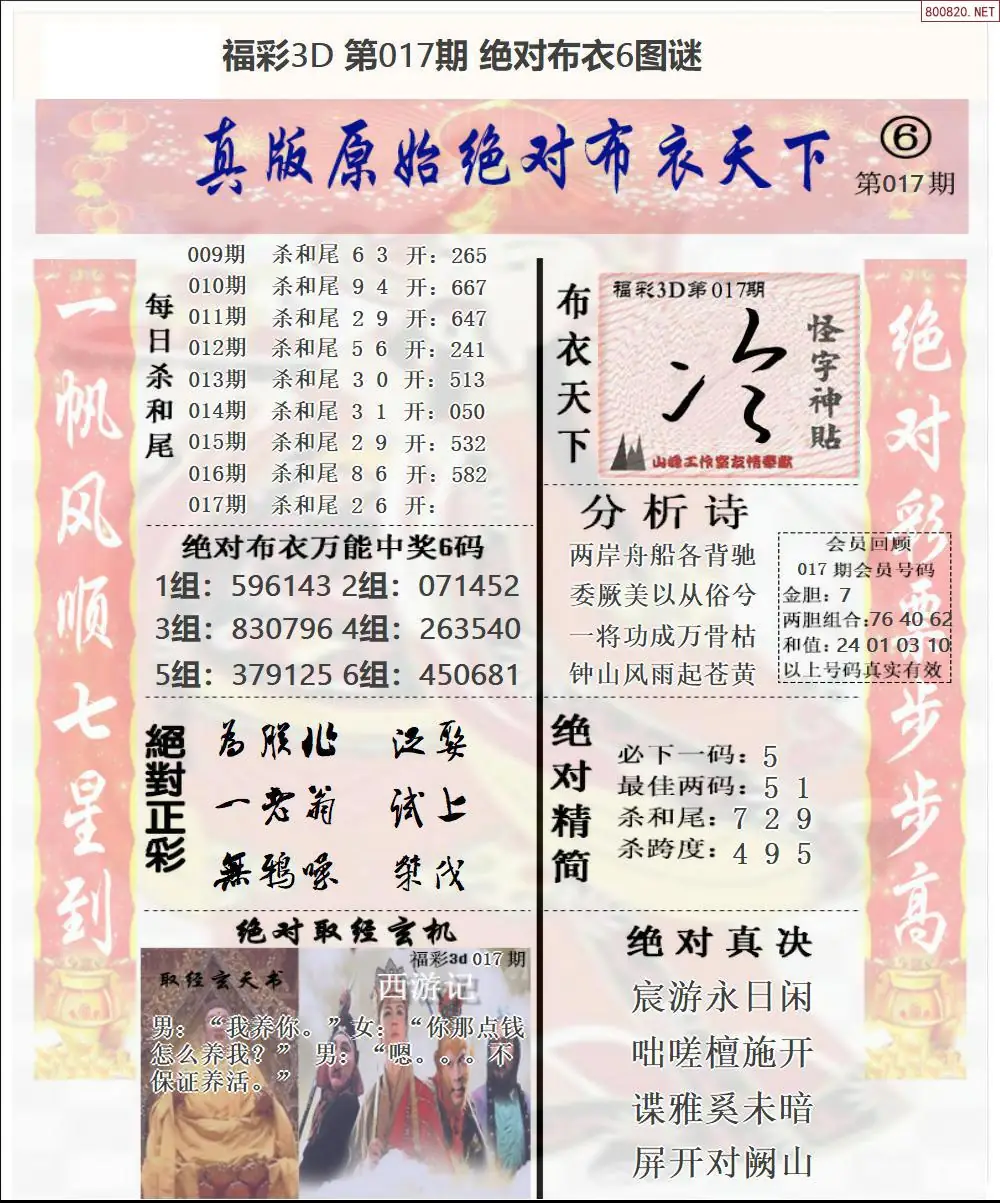 800820.NET
福彩3D 第017期 绝对布衣6图谜
真版原始绝对布衣天下
6
第017期
一帆风顺七星到
每日杀和尾
009期 杀和尾 6 3 开：265
010期 杀和尾 9 4 开：667
011期 杀和尾 2 9 开：647
012期 杀和尾 5 6 开：241
013期 杀和尾 3 0 开：513
014期 杀和尾 3 1 开：050
015期 杀和尾 2 9 开：532
016期 杀和尾 8 6 开：582
017期 杀和尾 2 6 开：
绝对布衣万能中奖6码
1组：596143 2组：071452
3组：830796 4组：263540
5组：379125 6组：450681
絕對正彩
為朕兆 泛娶
一老翁 试上
無鸦噪 桀戊
绝对取经玄机
福彩3d 017期
取经玄天书
西游记
男：“我养你。”女：“你那点钱
怎么养我？” 男：“嗯。。。不
保证养活。”
布衣天下
福彩3D第017期
冷
怪字神貼
山峰工作室友情奉献
分析诗
两岸舟船各背驰
委厥美以从俗兮
一将功成万骨枯
钟山风雨起苍黄
会员回顾
017期会员号码
金胆：7
两胆组合:76 40 62
和值：24 01 03 10
以上号码真实有效
绝对精简
必下一码：5
最佳两码：5 1
杀和尾：7 2 9
杀跨度：4 9 5
绝对真决
宸游永日闲
咄嗟檀施开
谍雅奚未暗
屏开对阙山
绝对彩票步步高